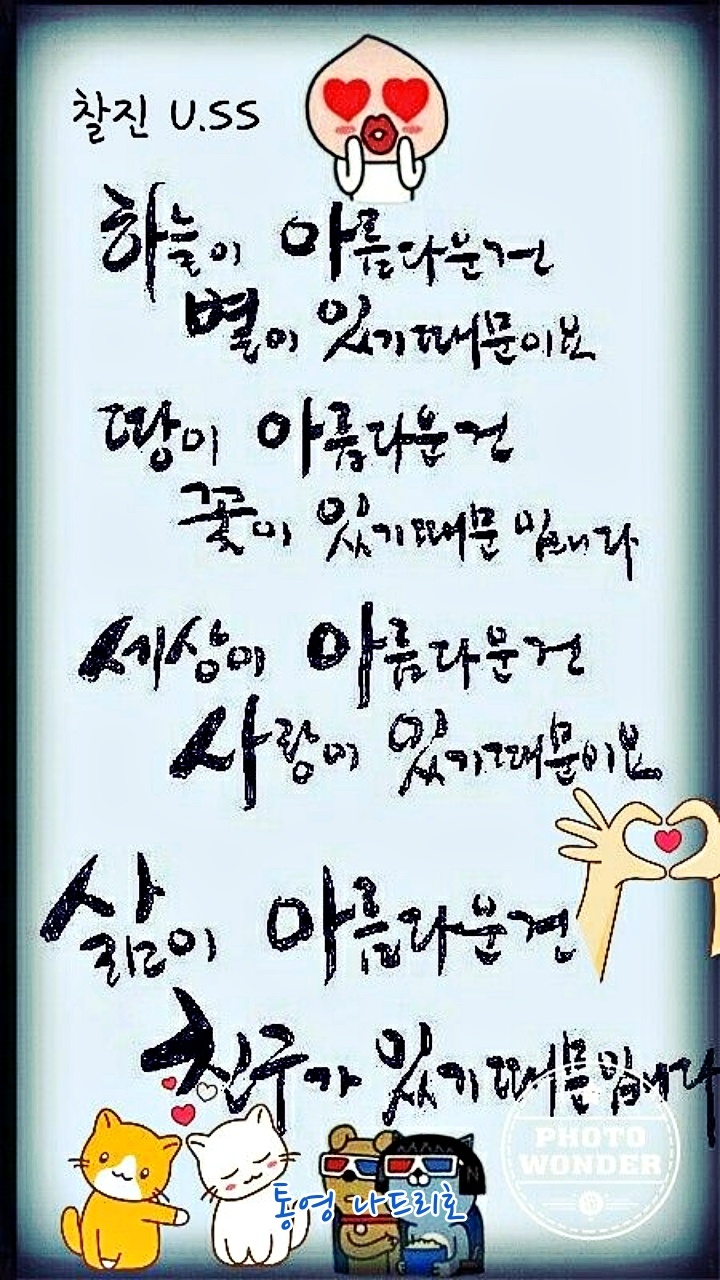 찰진 U.SS
하늘이 아름다운건
별이 있기때문이요
땅이 아름다운건
꽃이 있기때문 입니다
세상이 아름다운건
사랑이 있기때문이요
삶이 아름다운건
친구가 있기때문입니다
PHOTO
WONDER
통영 나드리호